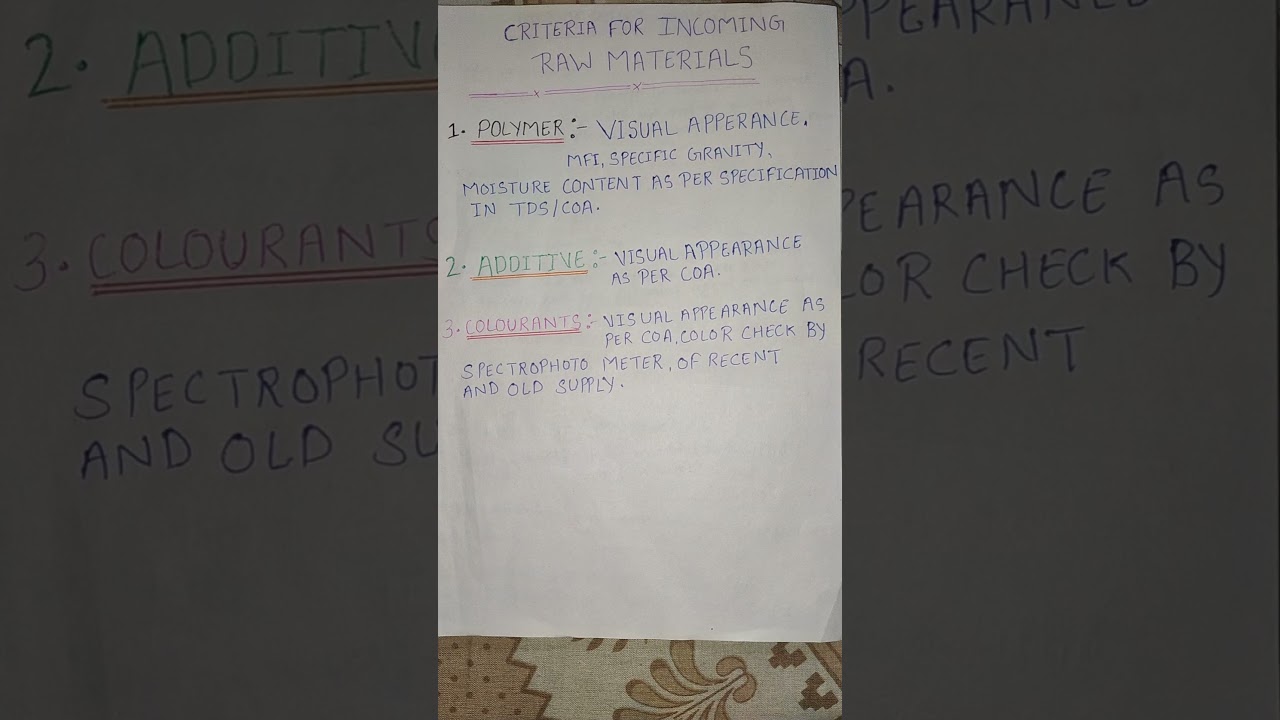 CRITERIA FOR INCOMING
RAW MATERIALS
1. POLYMER:- VISUAL APPERANCE.
MFI, SPECIFIC GRAVITY,
MOISTURE CONTENT AS PER SPECIFICATION
IN TDS/COA.
2. ADDITIVE:- VISUAL APPEARANCE
AS PER COA.
3. COLOURANTS:- VISUAL APPEARANCE AS
PER COA, COLOR CHECK BY
SPECTROPHOTO METER, OF RECENT
AND OLD SUPPLY.